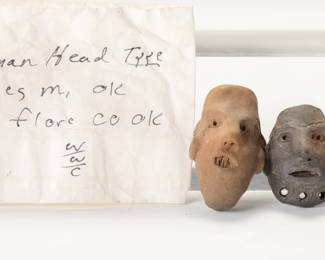 man Head Type
es m, ok
flore co ok
W
W
C